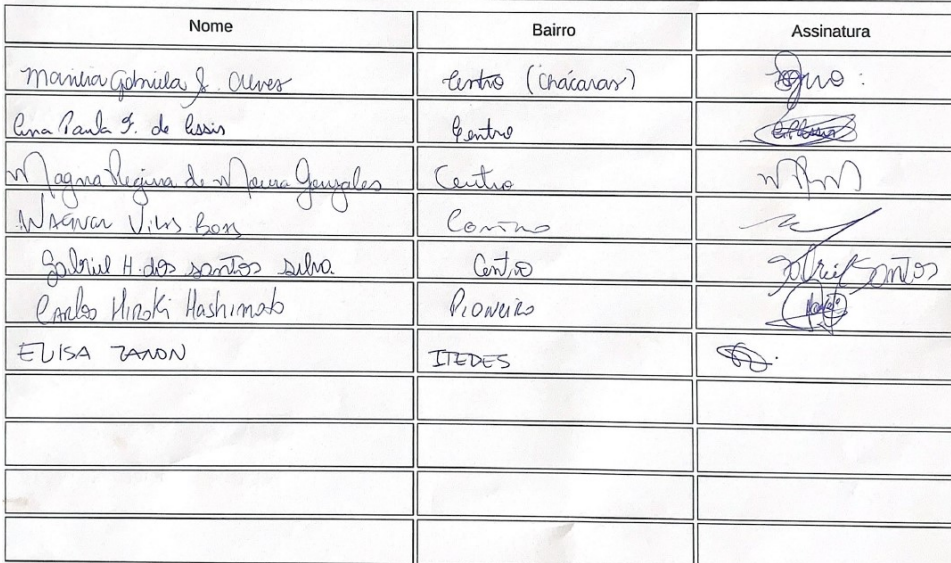 Nome Bairro Assinatura
Marilia Gabriela S. Alves Centro (Chácaras)
Ana Paula F. de Assis Centro
Magna Regina de Moura Gonzales Centro
Wagner Centro
Gabriel H. dos santos silva. Centro Gabriel Santos
Carlos Hiroki Hashimoto Pioneiro
ELISA ZANON ITEDES